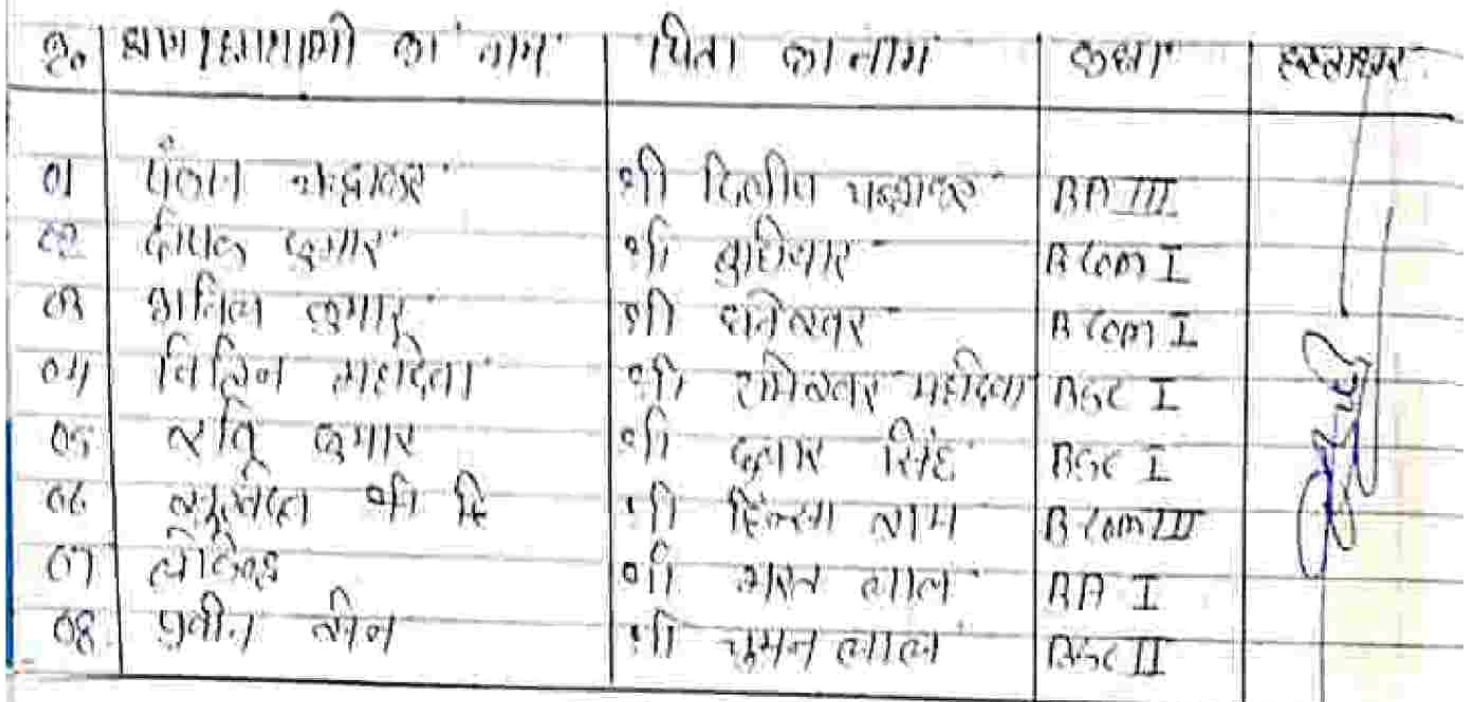 क्र. छात्र/छात्राओं का नाम पिता का नाम कक्षा हस्ताक्षर
01 पंकज चन्द्राकर श्री दिलीप चन्द्राकर BA III
02 दीपक कुमार श्री बुधियार B Com I
03 अनिल कुमार श्री शनेश्वर B Com I
04 महादेवा श्री रामेश्वर महादेवा BSC I
05 रवि कुमार श्री सिंह BSC I
06 श्री राम B Com III
07 लोकेन्द्र श्री भरत लाल BA I
08 प्रवीन श्री चुमन लाल BSC II